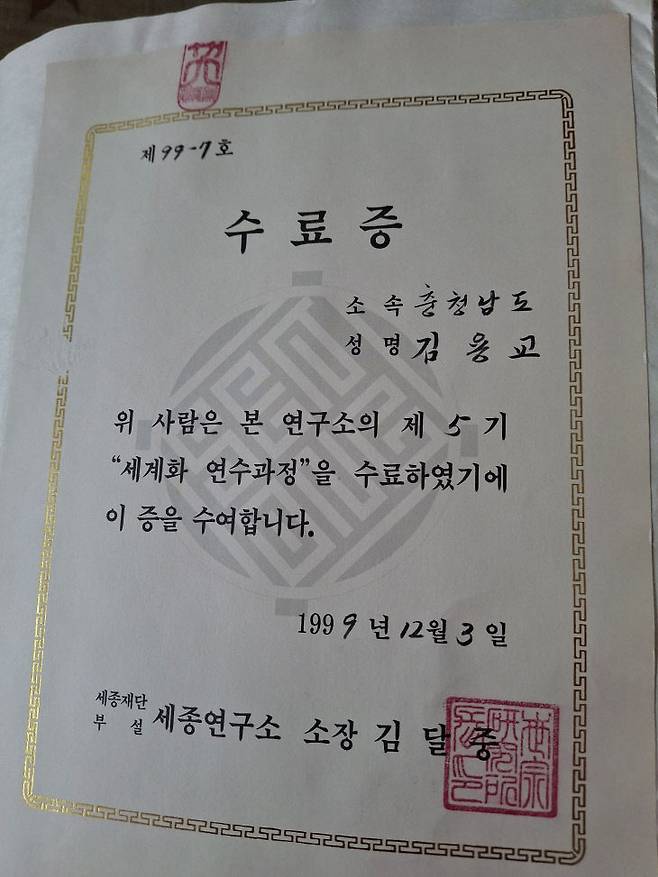 제 99-7호
수료증
소 속 충청남도
성 명 김용교
위 사람은 본 연구소의 제 5 기
“세계화 연수과정”을 수료하였기에
이 증을 수여합니다.
1999년 12월 3일
세종재단
부 설 세종연구소 소장 김 달 중